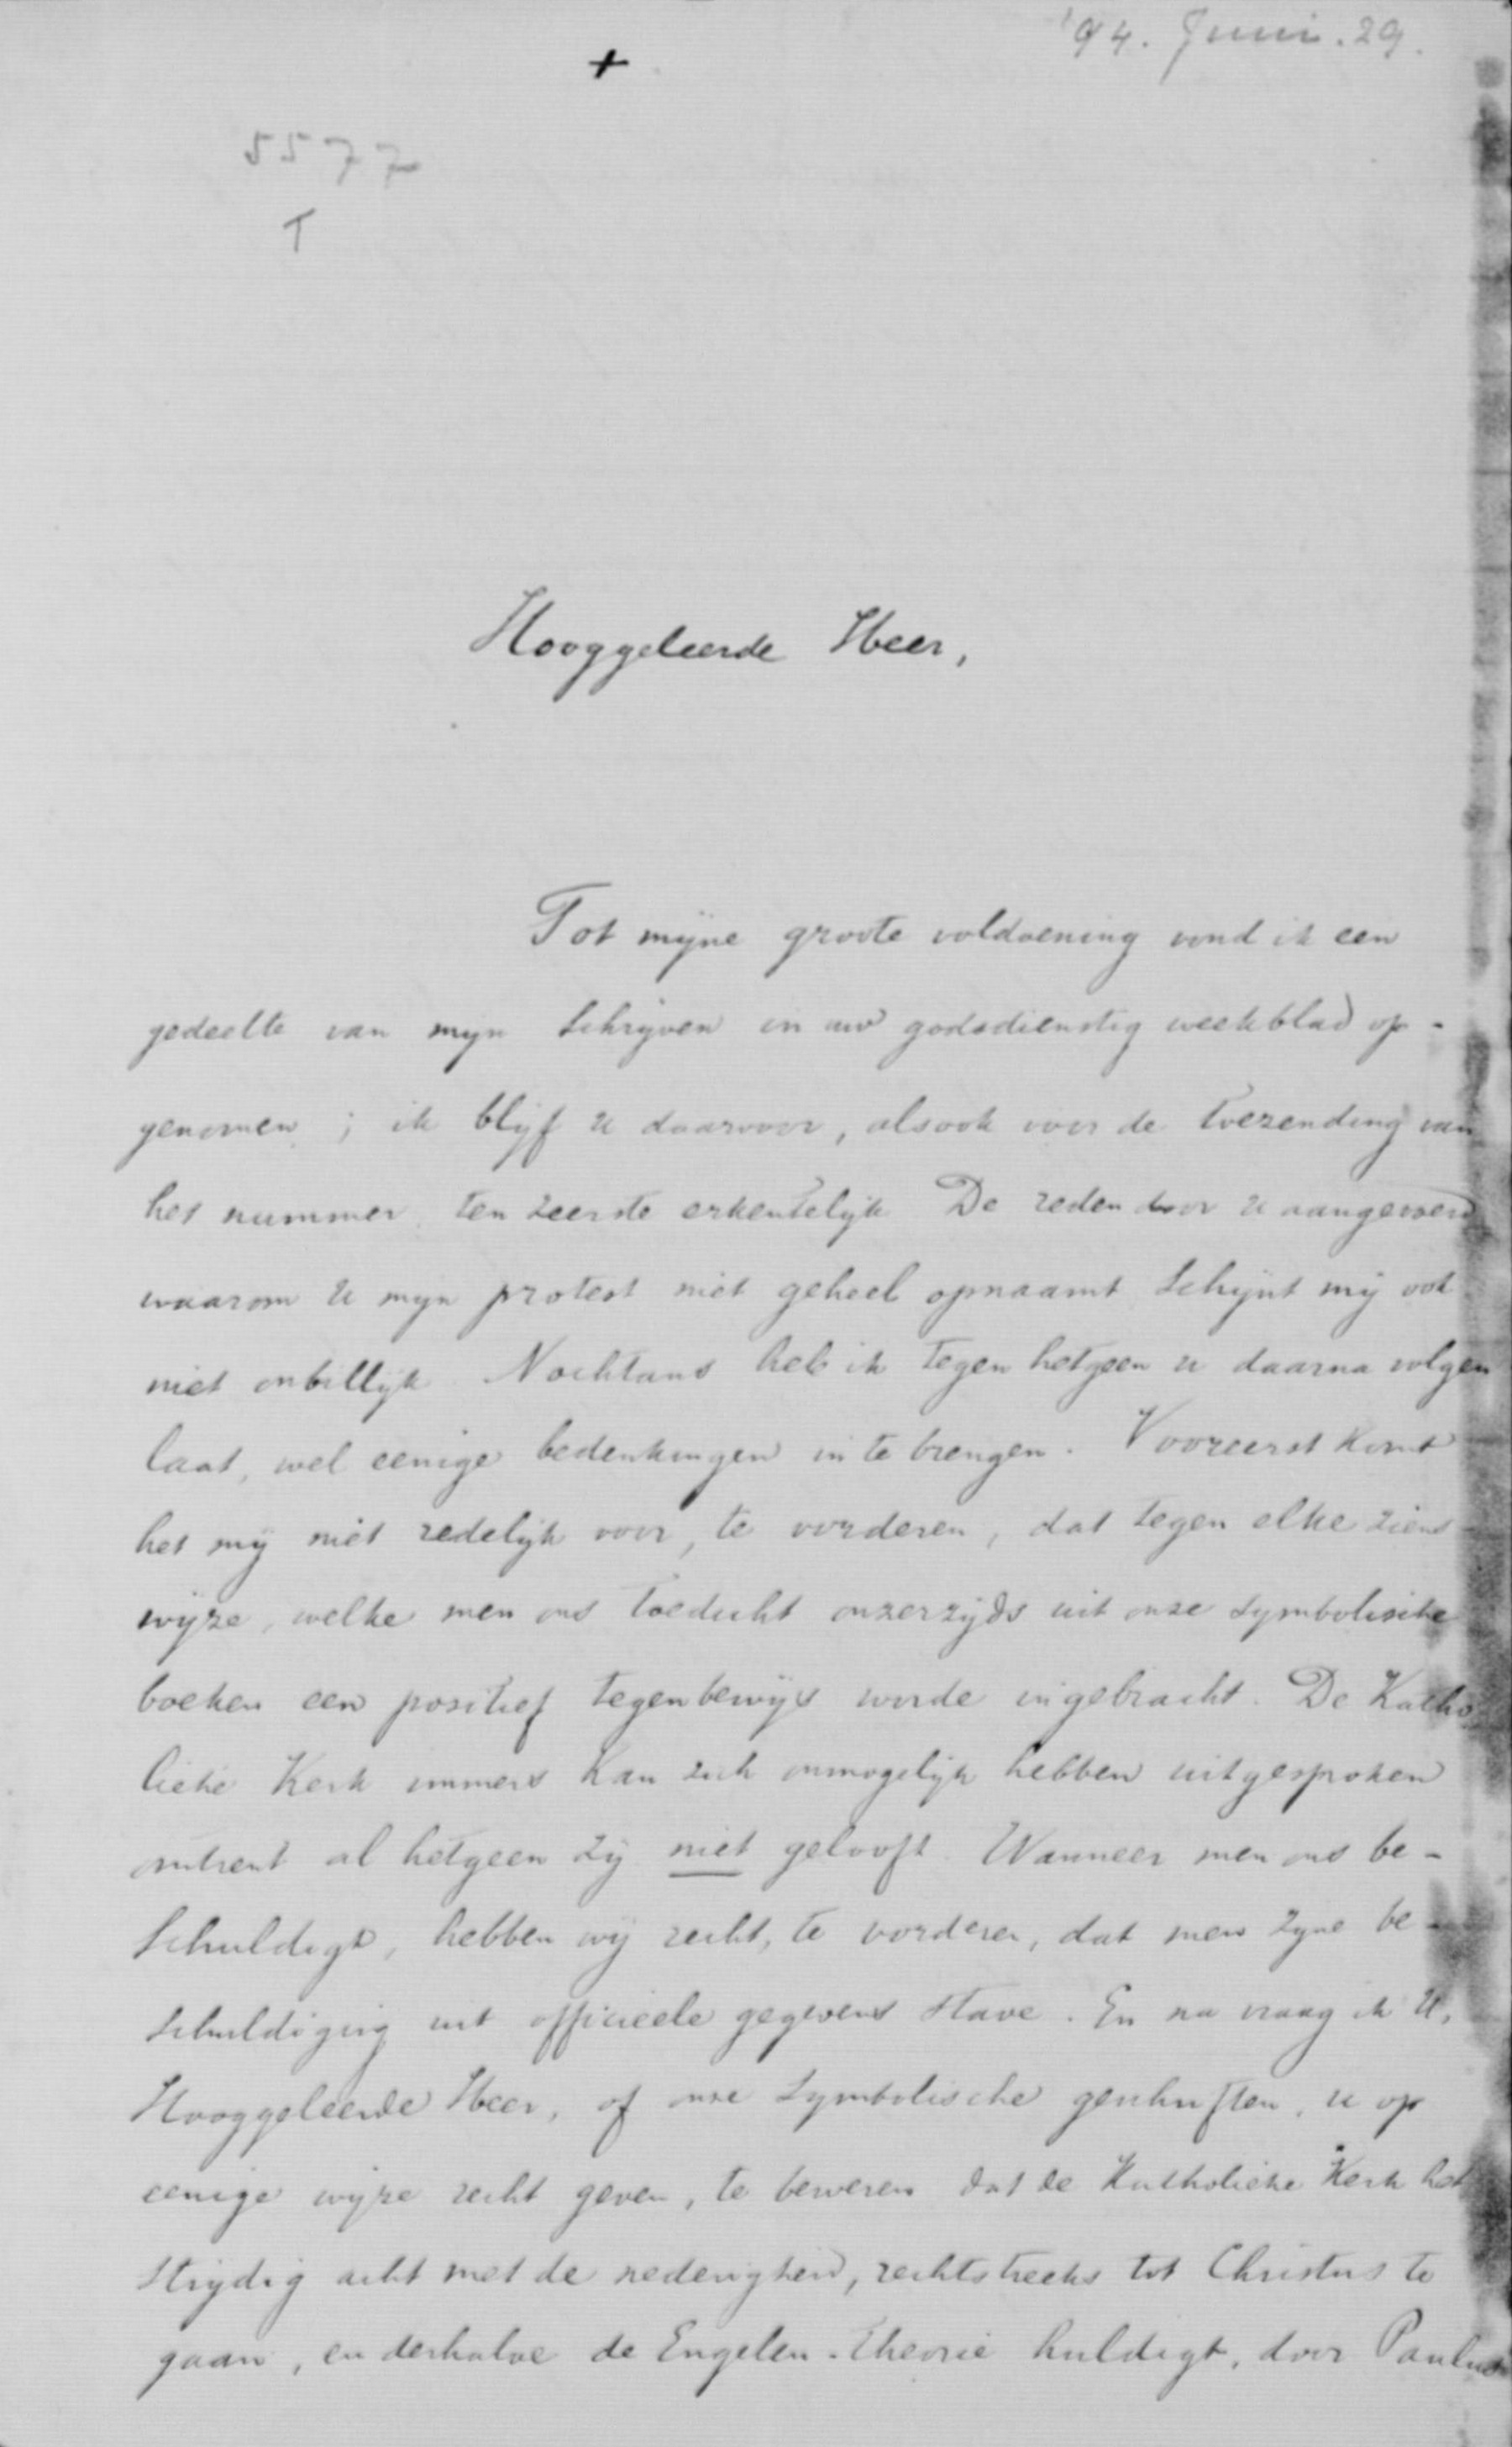 '94. Juni. 29.
+
5577
T
Hooggeleerde Heer,
Tot mijne groote voldoening vond ik een
gedeelte van mijn schrijven in uw godsdienstig weekblad op-
genomen; ik blijf u daarvoor, alsook voor de toezending van
het nummer, ten zeerste erkentelijk. De reden door u aangevoerd
waarom u mijn protest niet geheel opnaamt schijnt mij ook
niet onbillijk. Nochtans heb ik tegen hetgeen u daarna volgen
laat, wel eenige bedenkingen in te brengen. Vooreerst komt
het mij niet redelijk voor, te vorderen, dat tegen elke ziens-
wijze, welke men ons toedicht onzerzijds uit onze symbolische
boeken een positief tegenbewijs worde ingebracht. De Katho
lieke Kerk immers kan zich onmogelijk hebben uitgesproken
omtrent al hetgeen zij niet gelooft. Wanneer men ons be-
schuldigt, hebben wij recht, te vorderen, dat men zijne be-
schuldiging uit officieele gegevens stave. En nu vraag ik U,
Hooggeleerde Heer, of onze symbolische geschriften, u op
eenige wijze recht geven, te beweren dat de Katholieke Kerk het
strijdig acht met de nederigheid, rechtstreeks tot Christus te
gaan, en derhalve de Engelen-theorie huldigt, door Paulus